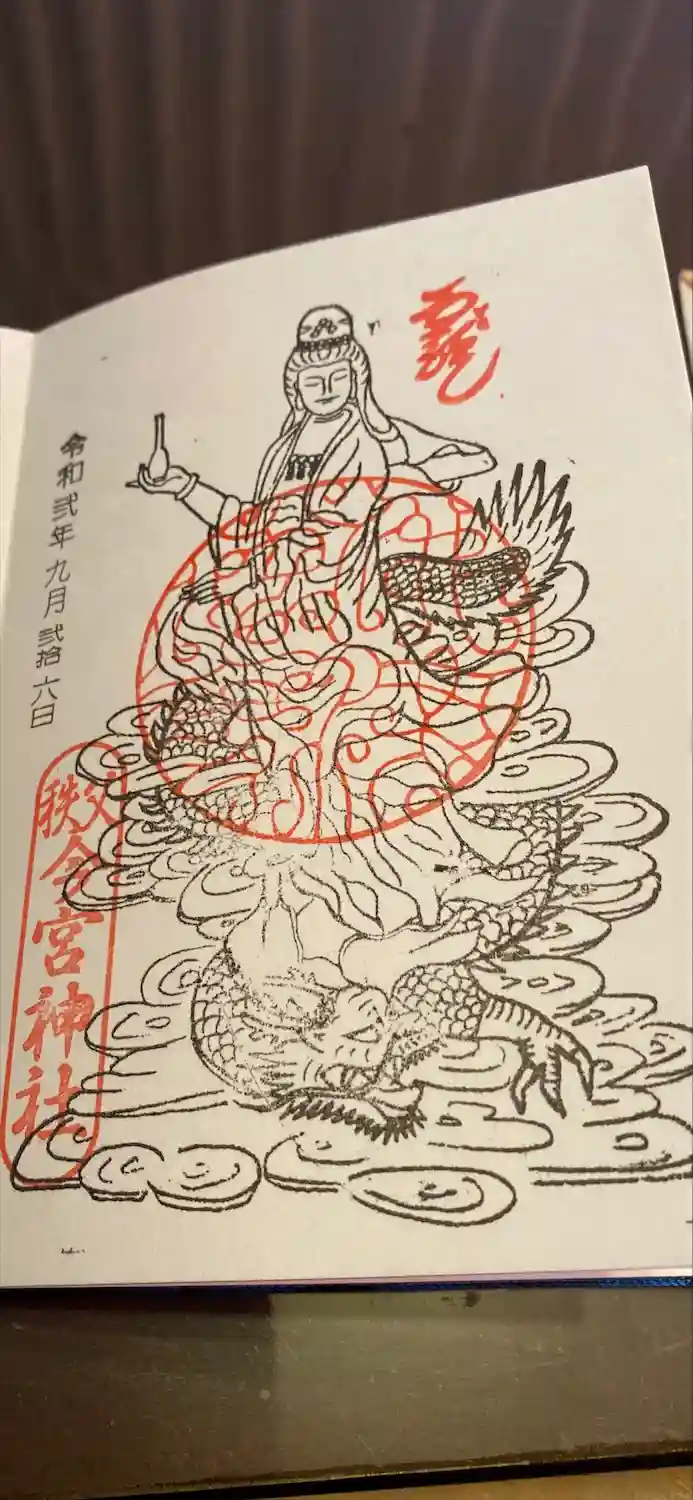 龍
令和弐年九月弐拾六日
秩父今宮神社